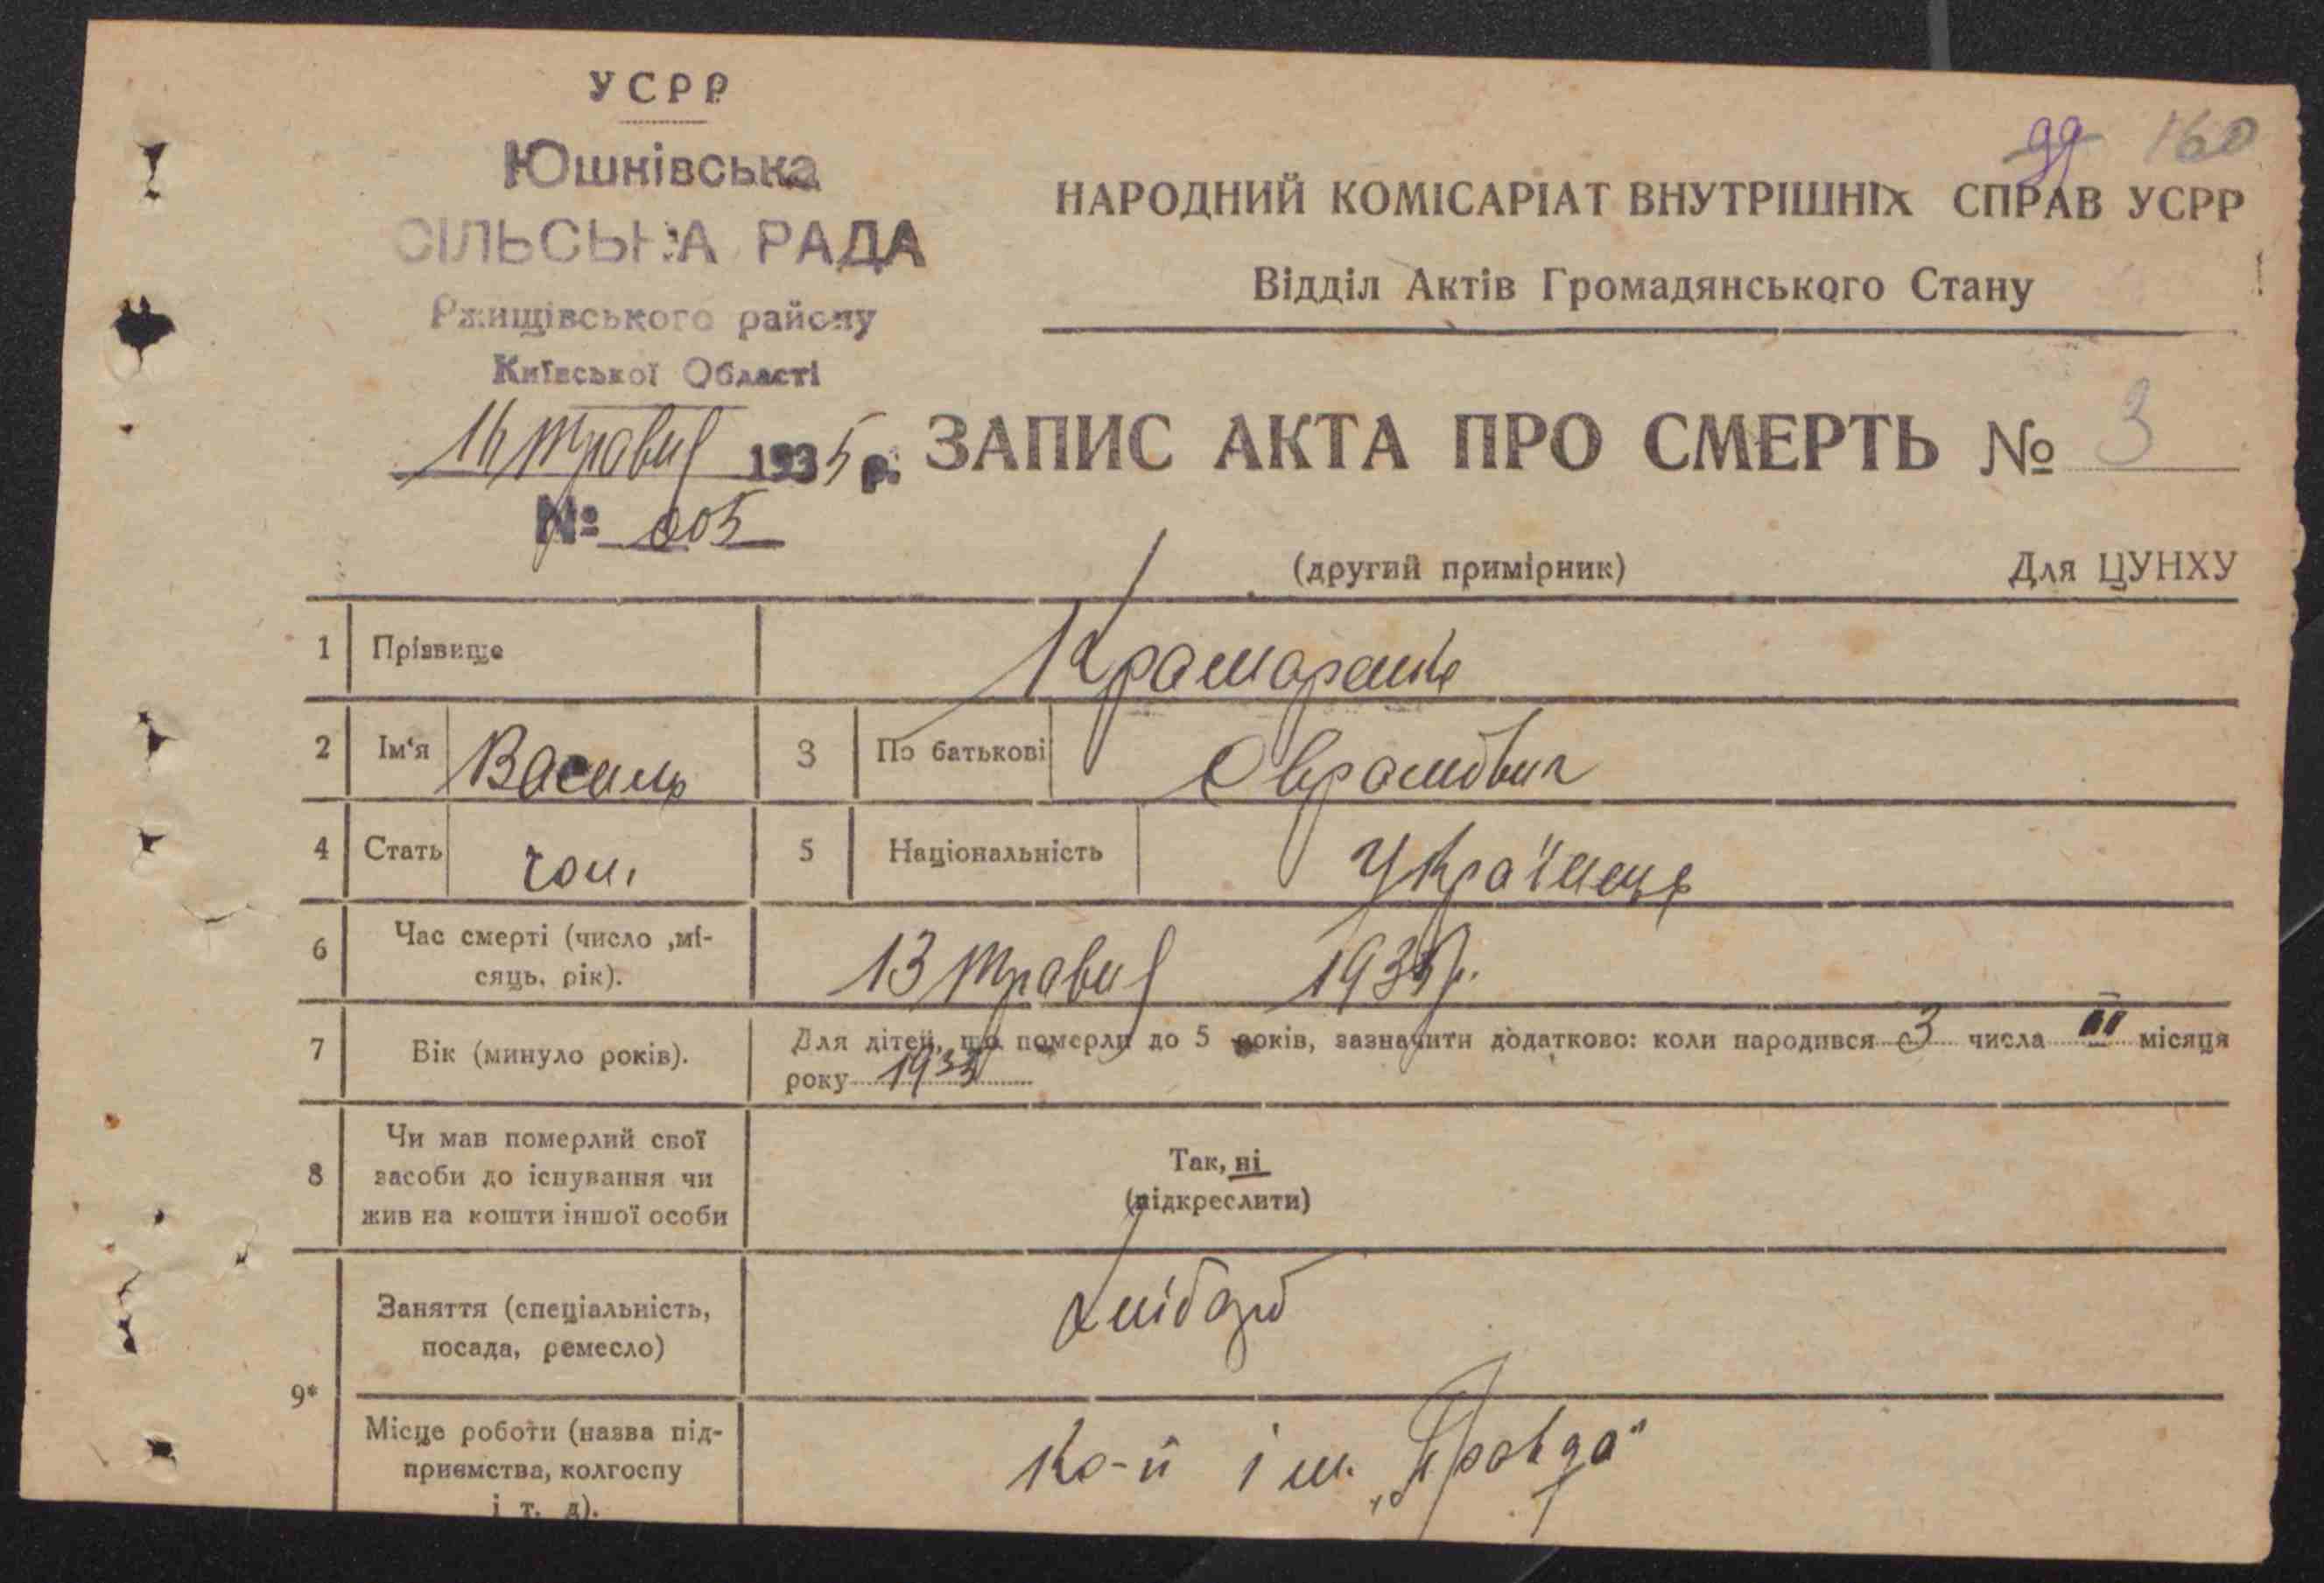 УСРР
Юшківська
СІЛЬСЬКА РАДА
Ржищівського району
Київської Області
16 травня 1935 р.
№ 005
99 160
НАРОДНИЙ КОМІСАРІАТ ВНУТРІШНІХ СПРАВ УСРР
Відділ Актів Громадянського Стану
ЗАПИС АКТА ПРО СМЕРТЬ № 3
(другий примірник) Для ЦУНХУ
1 Прізвище Крамаренко
2 Ім'я Василь 3 По батькові Оврамович
4 Стать чол. 5 Національність Українець
6 Час смерті (число ,мі-
сяць, рік). 13 травня 1935 р.
7 Вік (минуло років). Для дітей, що померли до 5 років, зазначити додатково: коли народився 3 числа III місяця
року 1933
8 Чи мав померлий свої
засоби до існування чи
жив на кошти іншої особи
Так, ні
(підкреслити)
9*
Заняття (спеціальність,
посада, ремесло)
Хлібороб
Місце роботи (назва під-
приємства, колгоспу
і т. д).
ім. „Правда"